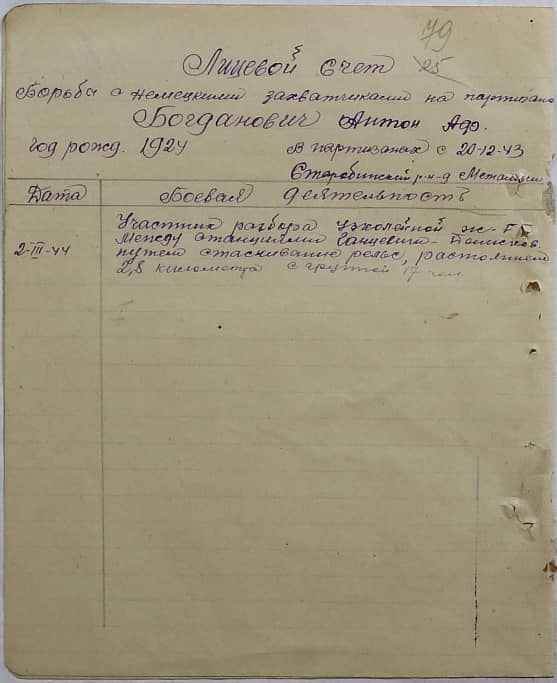 79
25
Лицевой Счет
Борьба с немецкими захватчиками на партизана
Богданович Антон Адо.
год рожд. 1924 в партизанах с 20-12-43
Старобинский р-н д
Дата Боевая деятельность
Участник разбора узколейной ж-
2-III-44 Между станциями Ганцевичи-
путем стаскивание рельс, растоянием
2,8 километра с группой 17 чел.